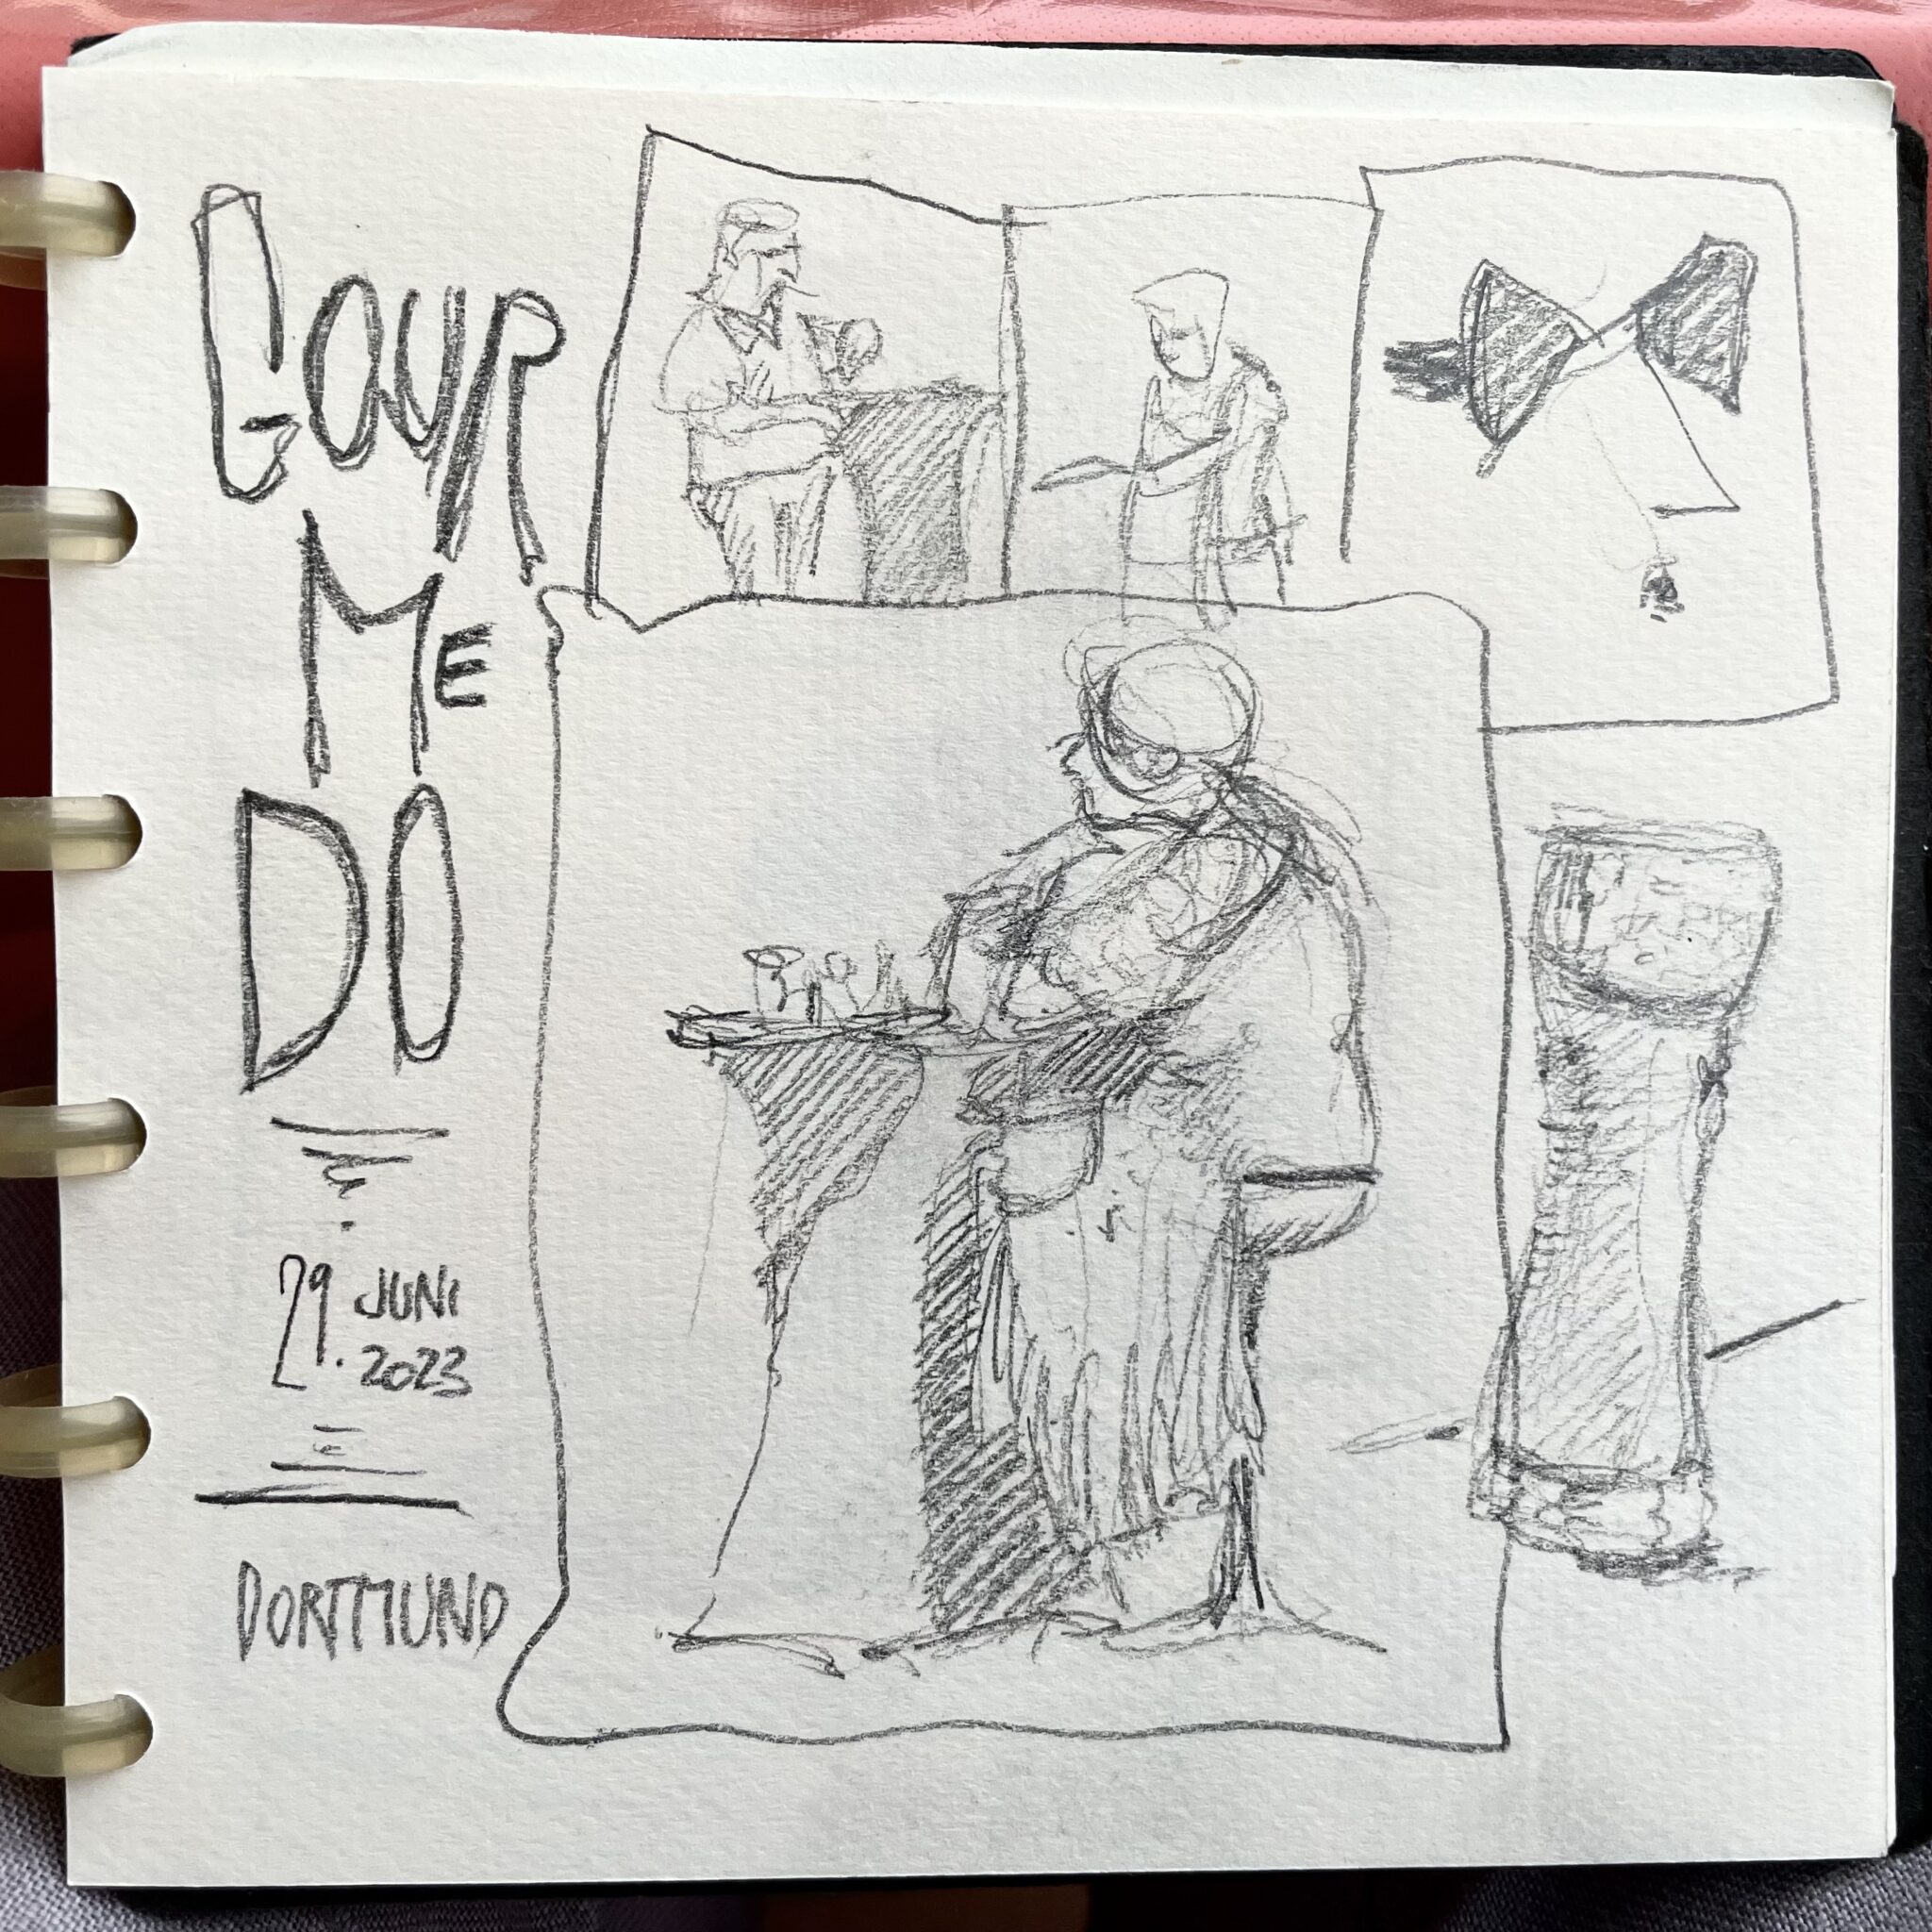 GOUR
ME
DO
29. JUNI
2023
DORTMUND